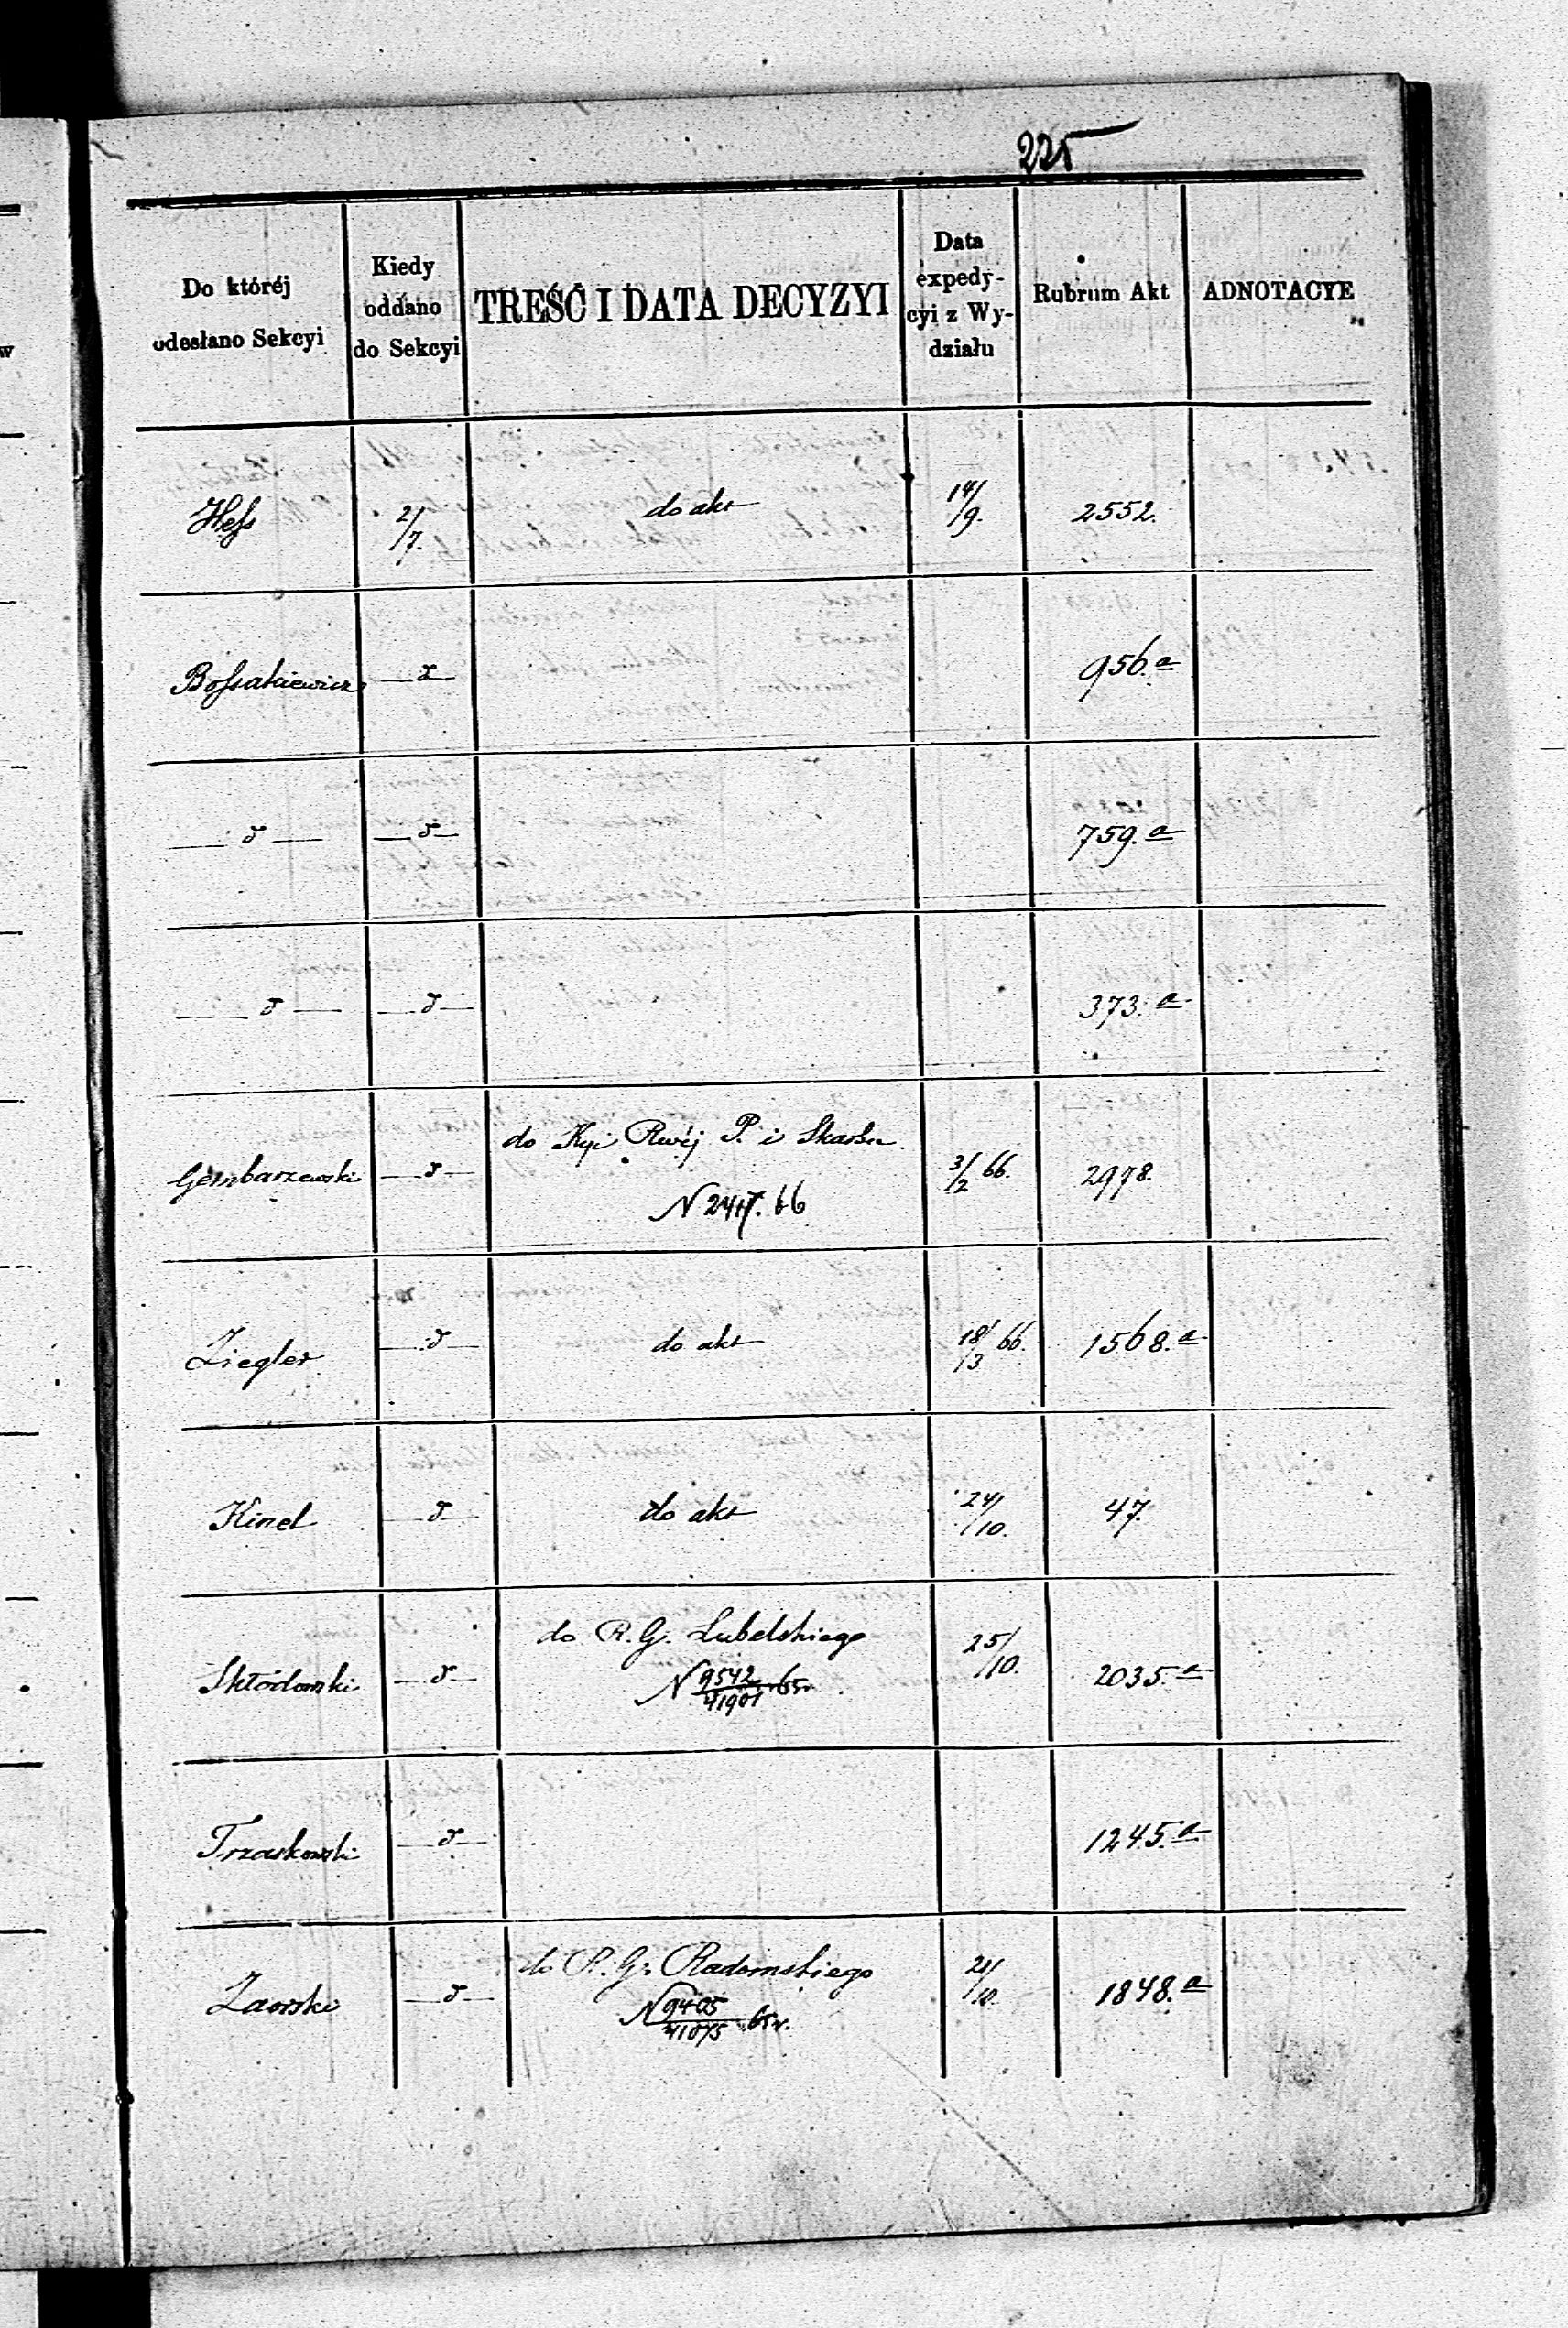 225
Do któréj
odesłano Sekcyi
Kiedy
oddano
do Sekcyi
TREŚĆ I DATA DECYZYI
Data
expedy-
cyi z Wy-
działu
Rubrum Akt
ADNOTACYE
Hess 2/7. do akt 14/9. 2552.
Bossakiewicz — d — 956.a
— d — — d — 759.a
— d — — d — 373.a
do Kyi Rwéj P. i Skarbu
Gembarzewski — d — 3/2 66. 2978.
N 66
Ziegler — d — do akt 18/3 66. 1568.a
Kinel — d — do akt 24/10. 47.
do R. G. Lubelskiego 25/10.
Skłódowski — d — N 9542/41901 65r. 2035.a
Trzaskowski — d — 1245.a
do R. G. Radomskiego
Zaorski — d — 21/10. 1848.a
N 9405/41075 65r.